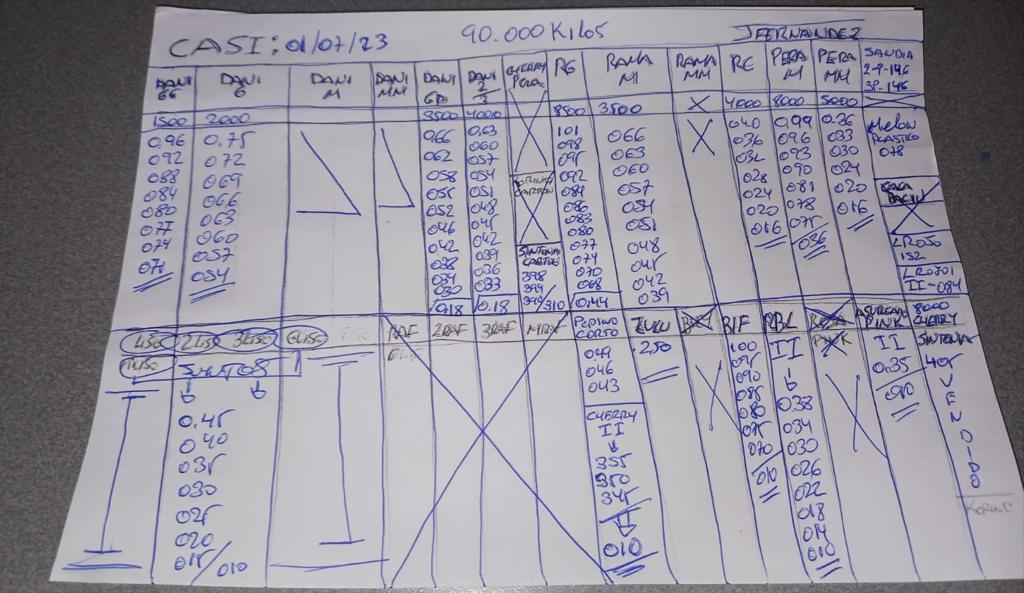 CASI: 01/07/23 90.000 Kilos JFERNANDEZ
DANI GG DANI G DANI M DANI MM DANI GP DANI 2/3 CHERRY Pera RG RAMA M RAMA MM RE PERA M PERA MM SANDIA
2-9-146
3P-146
1500 2000 3500 4000 8500 3500 X 4000 8000 5000
0,96 0,75 066 0,63 101 066 040 0,99 0,36 Melon
092 072 062 060 098 063 036 096 033 PLASTICO
088 069 058 057 095 060 032 093 030 078
084 066 055 054 092 057 028 090 024
080 063 052 051 084 054 024 081 020
077 060 046 048 086 051 020 078 016
074 057 042 045 083 048 016 075
071 054 038 042 080 045 036
034 039 077 042
030 036 074 039
033 070
068
018 0.18 0,44
CARTON
SINTONIA CARTON
398
394
390/310
LROJO
152
LROJO1
II-084
1LISO 2LISO 3LISO GLISO RAF 2RAF 3RAF MRAF PEPINO CORTO ZULU BIF RBL ASURCADO PINK 8000 CHERRY
SINTONIA
405
VENDIDO
0.45
040
035
030
025
020
015/010
049
046
043
CHERRY
II
355
350
345
010
2,50
100
095
090
085
080
075
070
010
II
038
034
030
026
022
018
014
010
II
0.35
010